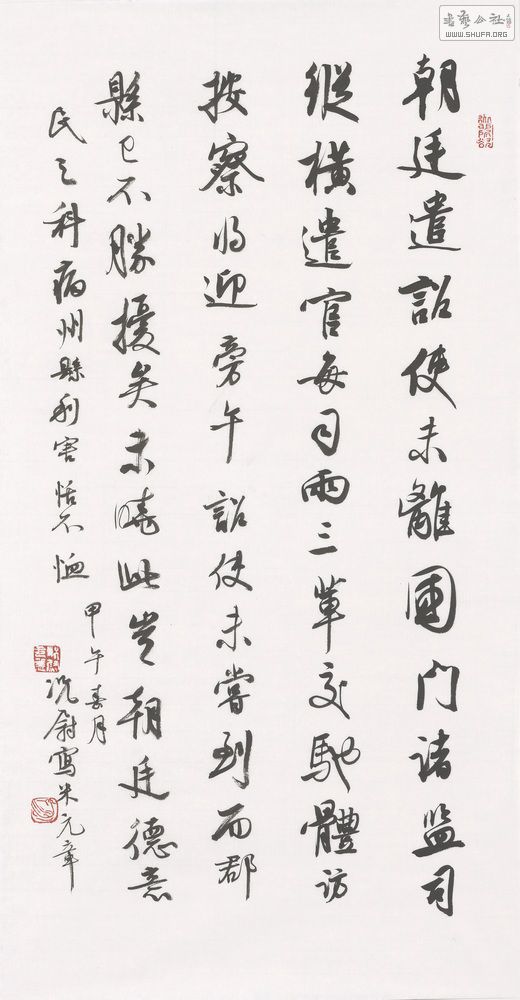 書藝公社
WWW.SHUFA.ORG
朝廷遣詔使未離國門諸监司
縱橫遣官每司兩三輩交馳體訪
按察將迎旁午詔使未嘗到而郡
縣已不勝擾矣未曉此豈朝廷德意
民之科病州縣利害恬不恤
甲午月
尉寫米元章